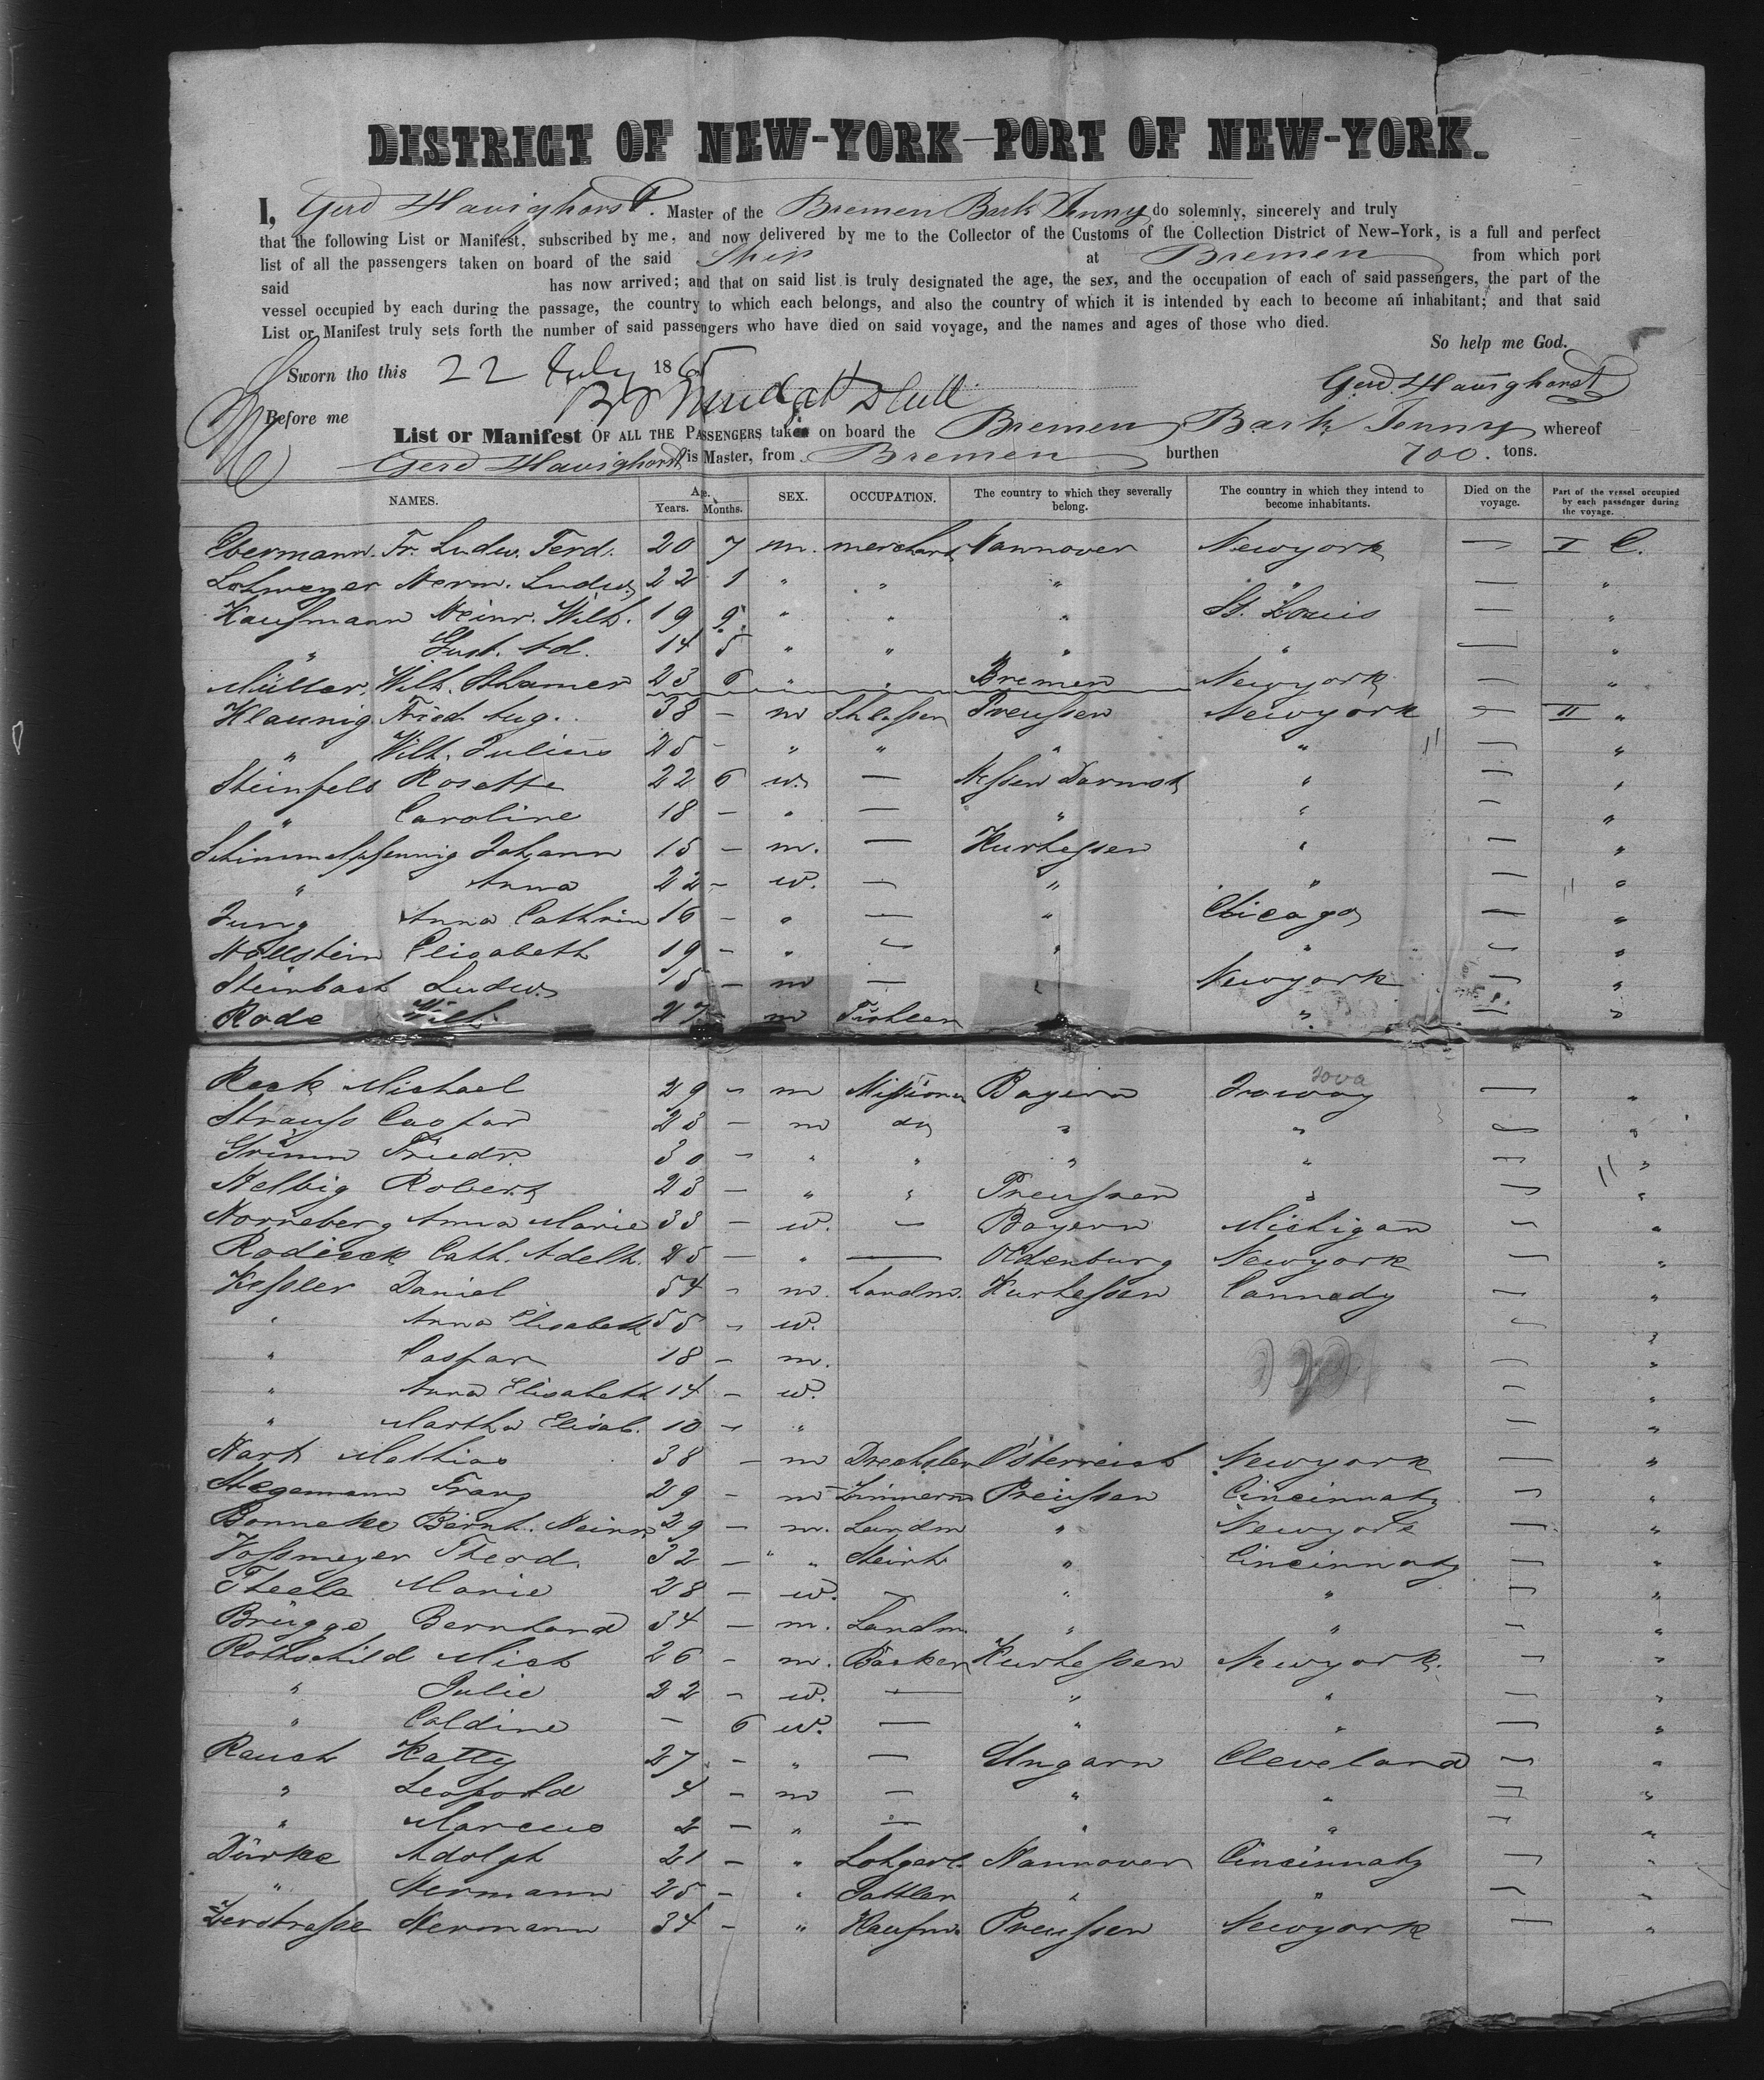 DISTRICT OF NEW-YORK—PORT OF NEW-YORK.
I, Gerd Havighorst. Master of the Bremen Bark Jenny do solemnly, sincerely and truly
that the following List or Manifest, subscribed by me, and now delivered by me to the Collector of the Customs of the Collection District of New-York, is a full and perfect
list of all the passengers taken on board of the said Ship at Bremen from which port
said has now arrived; and that on said list is truly designated the age, the sex, and the occupation of each of said passengers, the part of the
vessel occupied by each during the passage, the country to which each belongs, and also the country of which it is intended by each to become an inhabitant; and that said
List or Manifest truly sets forth the number of said passengers who have died on said voyage, and the names and ages of those who died.
So help me God.
Sworn tho this 22 July 1865
Gerd. Havighorst
Before me
List or Manifest OF ALL THE PASSENGERS taken on board the Bremen Bark Jenny whereof
Gerd Havighorst is Master, from Bremen burthen 700. tons.
NAMES. Age. Years. Months. SEX. OCCUPATION. The country to which they severally belong. The country in which they intend to become inhabitants. Died on the voyage. Part of the vessel occupied by each passenger during the voyage.
Ebermann. Fr. Ludw. Ferd. 20 7 m. merchand Hannover Newyork — I C.
Lohmeyer Herm. Ludw. 22 1 " " " " — "
Kaufmann Heinr. Wilh. 19 9 " " " St. Louis — "
" Gust. Ad. 14 5 " " " " — "
Müller, Wilh. 23 6 " " Bremen Newyork — "
Klaunig Fried. Aug. 38 — m Preussen Newyork — II "
" Wilh. Julius 25 — " " " " — "
Steinfeld Rosette 22 6 w. — Hessen Darmst " — "
" Caroline 18 — " — " " — "
Schimmelpfennig Johann 15 — m. — Kurhessen " — "
" Anna 22 — w. — " " — "
Jung Anna Cathrin 16 — " — " Chicago — "
Hollstein Elisabeth 19 — " — " " — "
Steinbach Ludw. 15 — m — " Newyork — "
Rode Wilh. 27 — m Tischler " " — "
Reck Michael 29 — m Missionar Bayern Joway Iova — "
Strauss Caspar 28 — m do " " — "
Grimm Friedr. 30 — " " " " — "
Helbig Robert 23 — " " Preussen " — "
Norneberg Anna Marie 33 — w. — Bayern Michigan — "
Rodieck Cath. Adelh. 25 — " — Oldenburg Newyork — "
Kessler Daniel 54 — m. Landm. Kurhessen Cannady — "
" Anna Elisabeth 55 — w. — "
" Caspar 18 — m. — "
" Anna Elisabeth 14 — w. — "
" Martha Elisab. 10 — " — "
Hart Mathias 38 — m Drechsler Österreich Newyork — "
Hegemann Franz 29 — m Zimmerm Preussen Cincinnaty — "
Bonneke Bernh. Heinr 29 — m. Landm " Newyork — "
Vossmeyer Theod. 32 — " " " Cincinnaty — "
Theele Marie 28 — w. — " " — "
Brügge Bernhard 34 — m. Landm " " — "
Rothschild Mich 26 — m. Bäcker Kurhessen Newyork. — "
" Julie 22 — w. — " " — "
" Caldine — 6 w. — " " — "
Rauch Katty 27 — " — Ungarn Cleveland — "
" Leopold 4 — m — " " — "
" Marcus 2 — " — " " — "
Dürke Adolph 21 — " Lohgerb. Hannover Cincinnaty — "
" Hermann 25 — " Sattler " " — "
Zerstrasse Hermann 34 — " Kaufm. Preussen Newyork — "